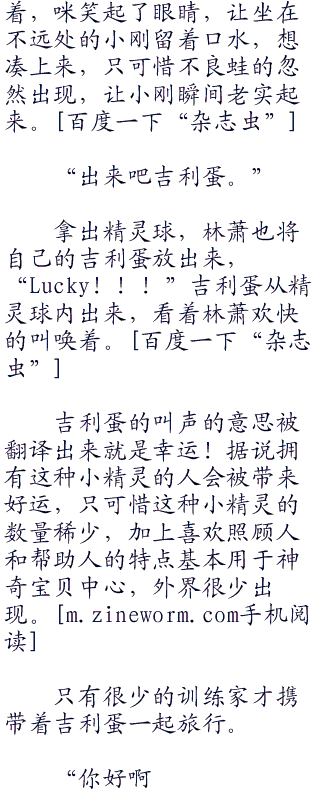 着，咪笑起了眼睛，让坐在
不远处的小刚留着口水，想
凑上来，只可惜不良蛙的忽
然出现，让小刚瞬间老实起
来。[百度一下“杂志虫”]
“出来吧吉利蛋。”
拿出精灵球，林萧也将
自己的吉利蛋放出来，
“Lucky！！！”吉利蛋从精
灵球内出来，看着林萧欢快
的叫唤着。[百度一下“杂志
虫”]
吉利蛋的叫声的意思被
翻译出来就是幸运！据说拥
有这种小精灵的人会被带来
好运，只可惜这种小精灵的
数量稀少，加上喜欢照顾人
和帮助人的特点基本用于神
奇宝贝中心，外界很少出
现。[m.zineworm.com手机阅
读]
只有很少的训练家才携
带着吉利蛋一起旅行。
“你好啊